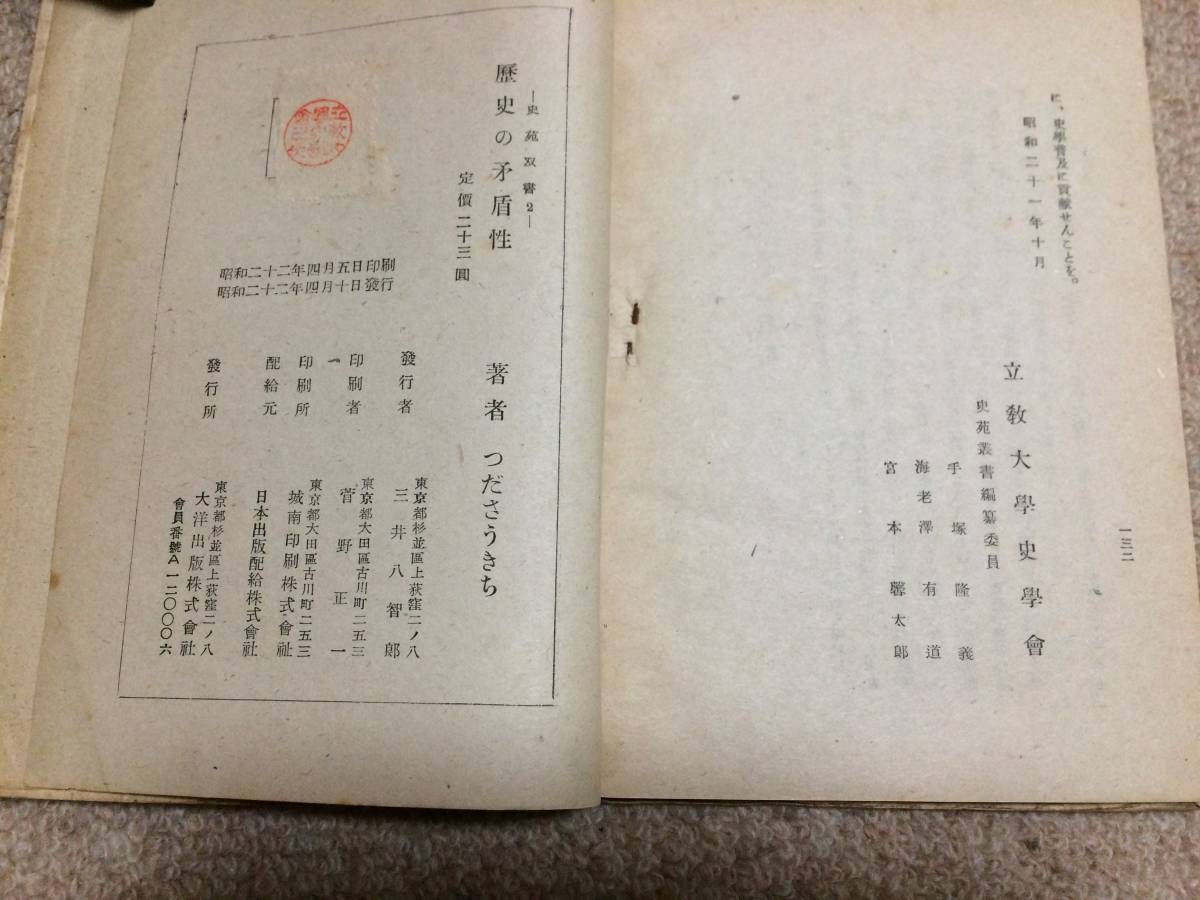 に、史學普及に貢献せんことを。
昭和二十一年十月
立教大學史學會
史苑叢書編纂委員
手塚隆義
海老澤有道
宮本馨太郎
一三二
―史苑双書2―
歷史の矛盾性
定價二十三圓
昭和二十二年四月五日印刷
昭和二十二年四月十日發行
著者 つださうきち
發行者 東京都杉並區上荻窪二ノ八
三井八智郎
印刷者 東京都大田區古川町二五三
菅野正一
印刷所 東京都大田區古川町二五三
城南印刷株式會社
配給元 日本出版配給株式會社
發行所 東京都杉並區上荻窪二ノ八
大洋出版株式會社
會員番號A一二〇〇〇六